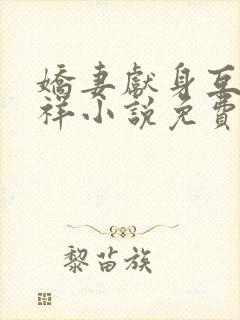 嬌妻獻身亙
祥小說免費
黎苗族